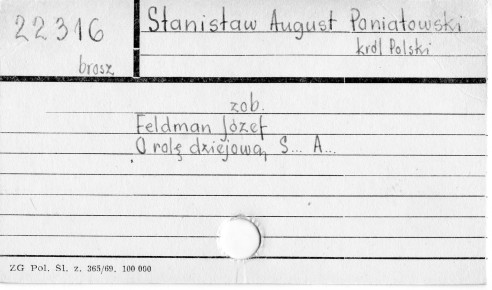 22316
brosz
Stanisław August Poniatowski
król Polski
zob.
Feldman Józef
O rolę dziejową S... A...
ZG Pol. Sl. z. 365/69. 100 000